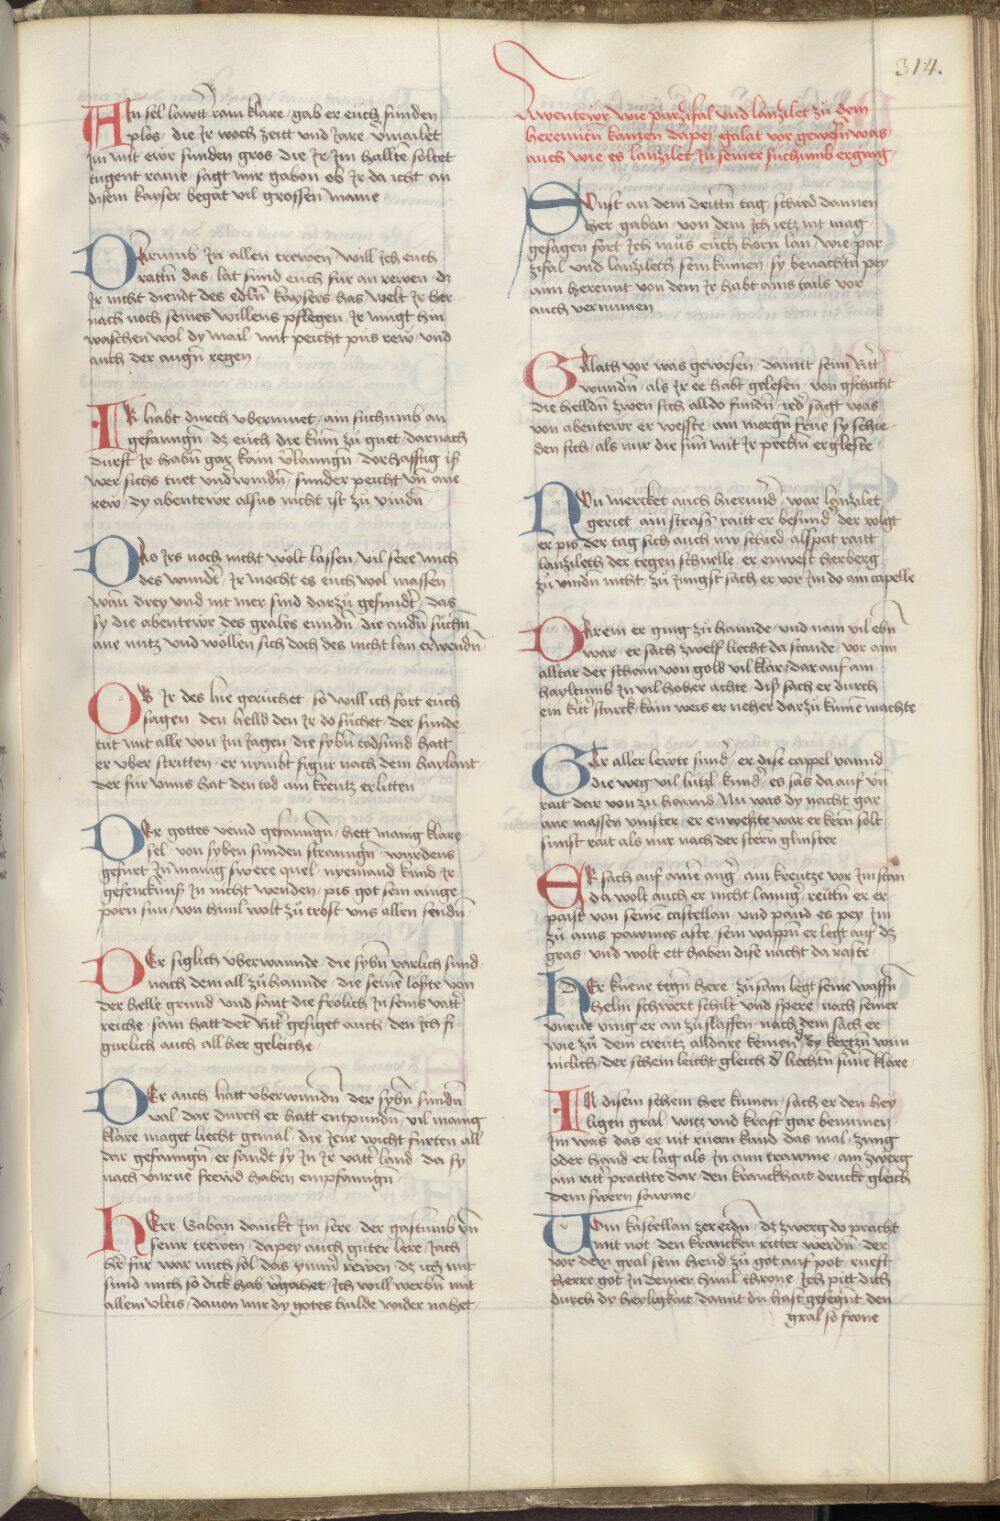 314.
Ain sel lawtter ram klare · gab er euch sunden
plos · die Ir woch zeitt und Jare · vmailet
Im mit ewr sunden gros · die Ir Im hallten soltet
tugent rame · sagt mir gabon ob Ir da icht an
disem kayser begat vil grossen maine ·
Darumb In allen trewen will Ich euch
rattn das · lat sund euch fur an rewen · dz
Ir nicht diendt des edln kaysers has welt Ir her
nach noch seines willens pflegen · Ir mugt hin
waschen wol dy mail · mit peicht pus rew · und
auch der augn regen ·
Ir habt durch vbermuet · ain suchumb an
gefanngn · dz euch die kum zu guet · darnach
durft Ir habn gar kain vlanngn dorhafftig Ist
wer sichs tuet undwindn · sunder peicht vn ane
rew · dy abentewr alsus nicht ist zu vindn
Das Irs noch nicht wolt lassen · vil sere mich
des wundt · Ir mocht es euch wol massen ·
wan drey und nit mer sind darzu gesundt · das
sy die abentewr des grales enndn · die andn suchn
ane nutz und wollen sich doch des nicht lan erwendn
Ob Ir des hie geruchet · so will ich fort euch
sagen · den helld den Ir do suchet · der sunde
tut mit alle von Im Jagen · die sybn todsund hatt
er vber stritten · er nymbt figur nach dem haylant
der fur vnns hat den tod am kreutz erlitten
Der gottes veind gefanngn · hett manig klare
sel · von syben sunden stranngn · wurdens
gefurt In manig swere quel · nyemand kund Ir
gefencknuss In nicht wenden · pis got sein ainge
porn sun · von himl wolt zu trost vns allen sendn
Der siglich vberwannde · die sybn varlich sund ·
nach dem all zuhannde · die seinen loste von
der helle grund · und sant die frolich In seins vatter
reiche · sam hatt der Ritter gesiget auch · den Ich fi
gurlich auch all her geleiche ·
Der auch hatt vberwundn · der sybn sundn
val · dar durch er hatt entpundn · vil manig
klare maget liecht gemal · die Jene wicht furten all
dar gefanngn · er sandt sy In Ir vatter land · da sy
nach vrne frewd haben empfanngn
Herr Gaban danckt Im sere · der gastumb vn
seinr trewen · dapey auch guter lere · Jach
hr fur war mich sol das ymmer rewen · dz ich mit
sund mich so dick hab vgahet · Ich will werbn mit
allem vleis · davon mir dy gotes hulde wider nahet ·
Awentewr wie parzifal vnd lanzilet zu dem
heremiten kamen dapey galat vor gewesn was
auch wie es lanzilet In seiner suchumb erging ·
Sunst an dem dritten tag · schied dannen
her gaban · von dem Ich ietz nit mag ·
gesagen fort Ich mus euch horn lan · wie par
zifal und lanzilech sein kumen · sy benachtn pey
aim heremit von dem Ir habt ains tails vor
auch vernumen
Galath vor was gewesen · damit seinn Ritter
wundn · als Ir ee habt gelesen · von gschicht
die helldn zwen sich alldo fundn · ied sagt was
von abentewr er weste · am morgn frue sy schie
den sich · als nur die sunn mit Ir prechn ergleste ·
Nun mercket auch hierund · war lanzilet
geriet · ain strass raitt er besund · der volgt
er pis der tag sich auch nu schied · als spat raitt
lanzilech der tegen schnelle · er enwest herberg
zu vindn nicht · zu Jungst sach er vor Im do ain capelle
Darein er ging zu hannde · und nam vil ebn
war · er sach zwelf liecht da stande · vor aim
alltar der schain von gold vil klar · dar auf ain
hayltumb In vil hoher achte · diss sach er durch
ein kutter starck · kain weis er neher darzu kumen machte
Gar aller lewte sunder · er dise capel vannd
die weg vil lutzl kunder · es sas da auf vn
rait dar von zu hannd · Nu was dy nacht gar
ane massen vinster · er enweste war er kern solt
sunst rait als nur nach der stern glinster
Er sach auf aine angr · ain kreutze vor Im stan
da wolt auch er nicht lanngr · reittn er er
paist von seinem castellan · und pand es pey Im
zu ains pawmes aste · sein wappn er legt auf dz
gras · und wolt ett haben dise nacht da raste ·
Der kuene tegn here · zusam legt seine waffn
helm schwert schilt und spere · nach seiner
vnrue ving er an zu slaffen · nach dem sach er
wie zu dem creutz alldare kemen · dy kertzn wun
niclich · der schein leicht gleich der liechtn sunne klare ·
In disem schein her kumen · sach er den hey
ligen gral · witz und kraft gar benumen ·
Im was das er nit ruern kund das mal · zung
oder hand er lag als In aim trawme · ain zwerg
ain ritter prachte dar · den kranckhait druckt gleich
dem swern sawme ·
Vom kastellan zer erdn · dz zwerg do pracht
mit not · den krancken ritter werdn · der
vor dem gral sein hend zu got auf pot · rueft
herre got In deiner himl throne · Ich pitt dich
durch dy heyligkait · damit du hast gesegnt den
gral so frone